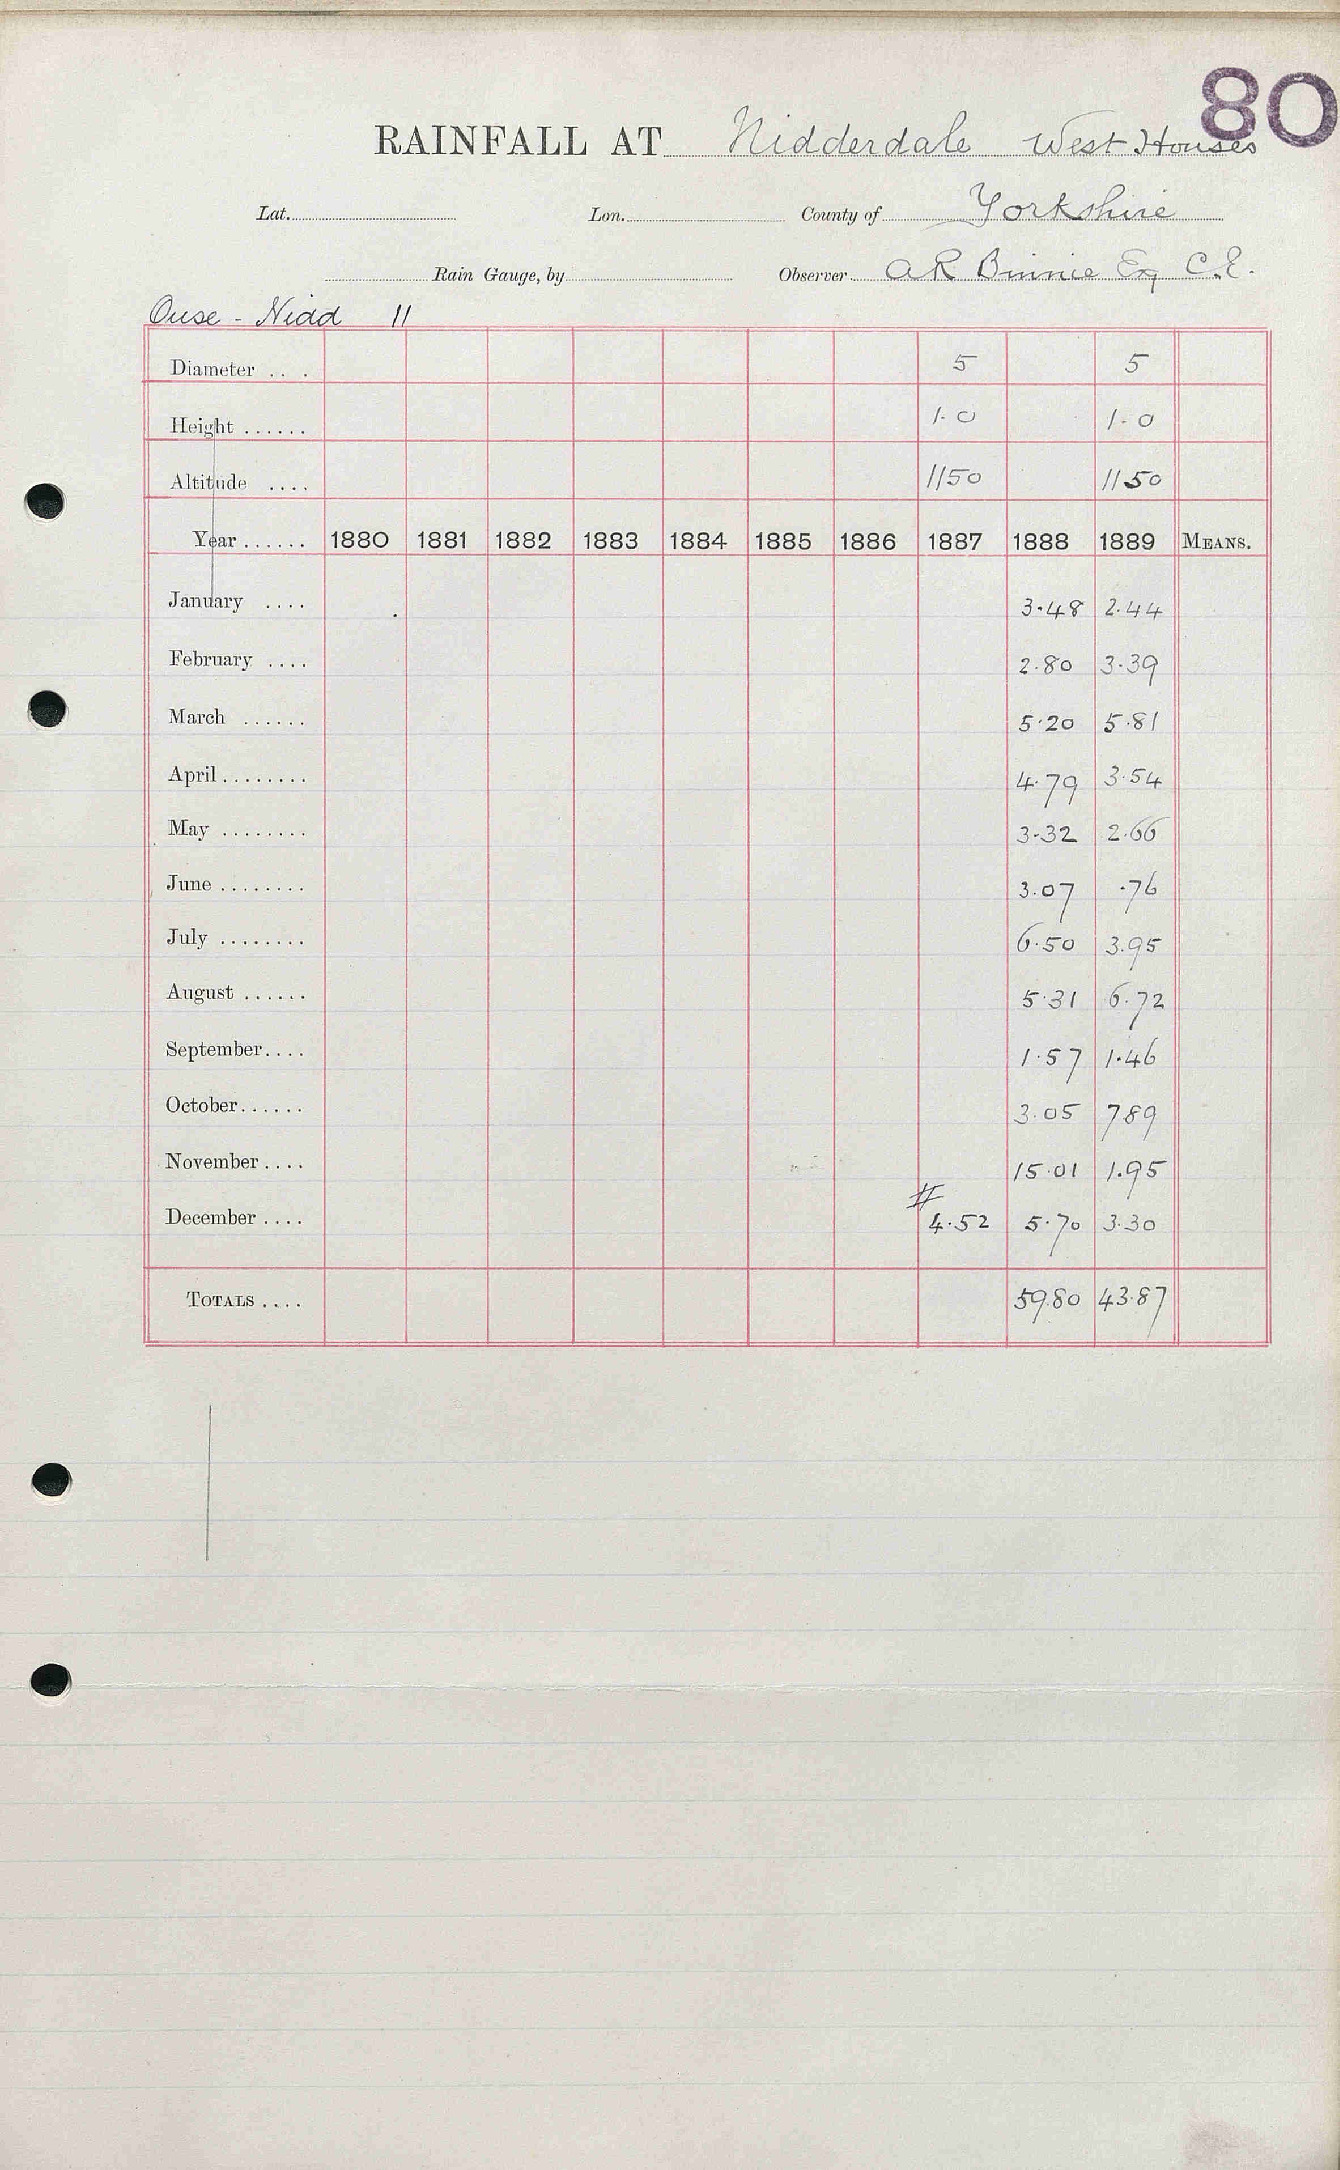 80
RAINFALL AT Nidderdale West Houses
Lat. Lon. County of Yorkshire
Rain Gauge, by Observer. A R Binnie Esq C.E.
Ouse - Nidd 11
Diameter . . . 5 5
Height ...... 1.0 1.0
Altitude .... 1150 1150
Year ...... 1880 1881 1882 1883 1884 1885 1886 1887 1888 1889 MEANS.
January .... 3.48 2.44
February .... 2.80 3.39
March ...... 5.20 5.81
April........ 4.79 3.54
May ........ 3.32 2.66
June ........ 3.07 .76
July ........ 6.50 3.95
August ...... 5.31 6.72
September.... 1.57 1.46
October...... 3.05 789
November.... 15.01 1.95
December.... # 4.52 5.70 3.30
TOTALS .... 59.80 43.87